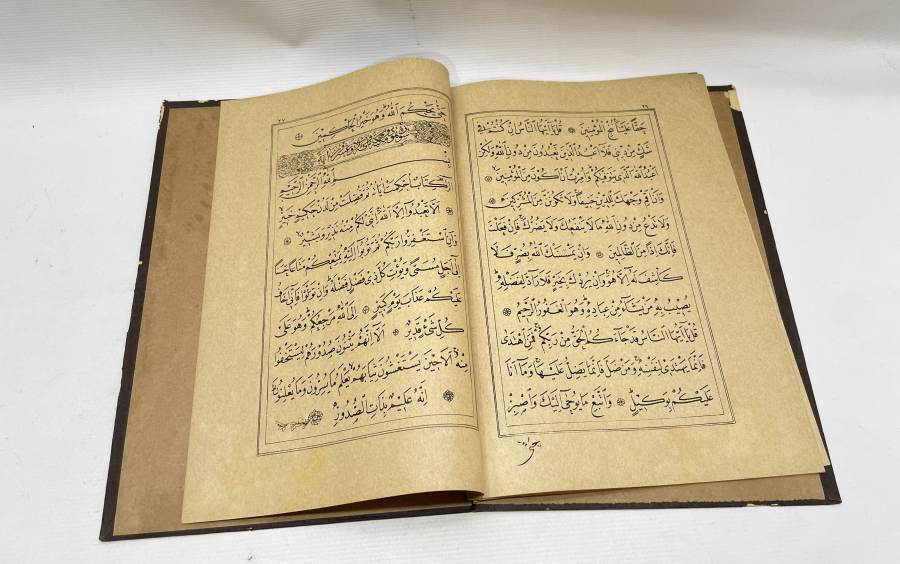 ٢٦
حَقًّا عَلَيْنَا نُنْجِ الْمُؤْمِنِينَ ۞ قُلْ يَٓا اَيُّهَا النَّاسُ اِنْ كُنْتُمْ فِي
شَكٍّ مِنْ دِينِي فَلَٓا اَعْبُدُ الَّذِينَ تَعْبُدُونَ مِنْ دُونِ اللّٰهِ وَلٰكِنْ
اَعْبُدُ اللّٰهَ الَّذِي يَتَوَفّٰيكُمْ وَاُمِرْتُ اَنْ اَكُونَ مِنَ الْمُؤْمِنِينَ ۞
وَاَنْ اَقِمْ وَجْهَكَ لِلدِّينِ حَنِيفًا وَلَا تَكُونَنَّ مِنَ الْمُشْرِكِينَ ۞
وَلَا تَدْعُ مِنْ دُونِ اللّٰهِ مَا لَا يَنْفَعُكَ وَلَا يَضُرُّكَ فَاِنْ فَعَلْتَ
فَاِنَّكَ اِذًا مِنَ الظَّالِمِينَ ۞ وَاِنْ يَمْسَسْكَ اللّٰهُ بِضُرٍّ فَلَا
كَاشِفَ لَهُٓ اِلَّا هُوَ وَاِنْ يُرِدْكَ بِخَيْرٍ فَلَا رَٓادَّ لِفَضْلِهِ
يُصِيبُ بِهِ مَنْ يَشَٓاءُ مِنْ عِبَادِهِ وَهُوَ الْغَفُورُ الرَّحِيمُ ۞
قُلْ يَٓا اَيُّهَا النَّاسُ قَدْ جَٓاءَكُمُ الْحَقُّ مِنْ رَبِّكُمْ فَمَنِ اهْتَدٰى
فَاِنَّمَا يَهْتَدِي لِنَفْسِهِ وَمَنْ ضَلَّ فَاِنَّمَا يَضِلُّ عَلَيْهَا وَمَٓا اَنَا۬
عَلَيْكُمْ بِوَكِيلٍ ۞ وَاتَّبِعْ مَا يُوحٰٓى اِلَيْكَ وَاصْبِرْ
٢٧
حَتّٰى يَحْكُمَ اللّٰهُ وَهُوَ خَيْرُ الْحَاكِمِينَ ۞
بِسْمِ اللّٰهِ الرَّحْمٰنِ الرَّحِيمِ
الٓرٰ كِتَابٌ اُحْكِمَتْ اٰيَاتُهُ ثُمَّ فُصِّلَتْ مِنْ لَدُنْ حَكِيمٍ خَبِيرٍ
۞ اَلَّا تَعْبُدُٓوا اِلَّا اللّٰهَ اِنَّنِي لَكُمْ مِنْهُ نَذِيرٌ وَبَشِيرٌ ۞
وَاَنِ اسْتَغْفِرُوا رَبَّكُمْ ثُمَّ تُوبُٓوا اِلَيْهِ يُمَتِّعْكُمْ مَتَاعًا حَسَنًا
اِلٰٓى اَجَلٍ مُسَمًّى وَيُؤْتِ كُلَّ ذِي فَضْلٍ فَضْلَهُ وَاِنْ تَوَلَّوْا فَاِنِّٓي اَخَافُ
عَلَيْكُمْ عَذَابَ يَوْمٍ كَبِيرٍ ۞ اِلَى اللّٰهِ مَرْجِعُكُمْ وَهُوَ عَلٰى
كُلِّ شَيْءٍ قَدِيرٌ ۞ اَلَٓا اِنَّهُمْ يَثْنُونَ صُدُورَهُمْ لِيَسْتَخْفُوا
مِنْهُ اَلَا حِينَ يَسْتَغْشُونَ ثِيَابَهُمْ يَعْلَمُ مَا يُسِرُّونَ وَمَا يُعْلِنُونَ
۞ اِنَّهُ عَلِيمٌ بِذَاتِ الصُّدُورِ